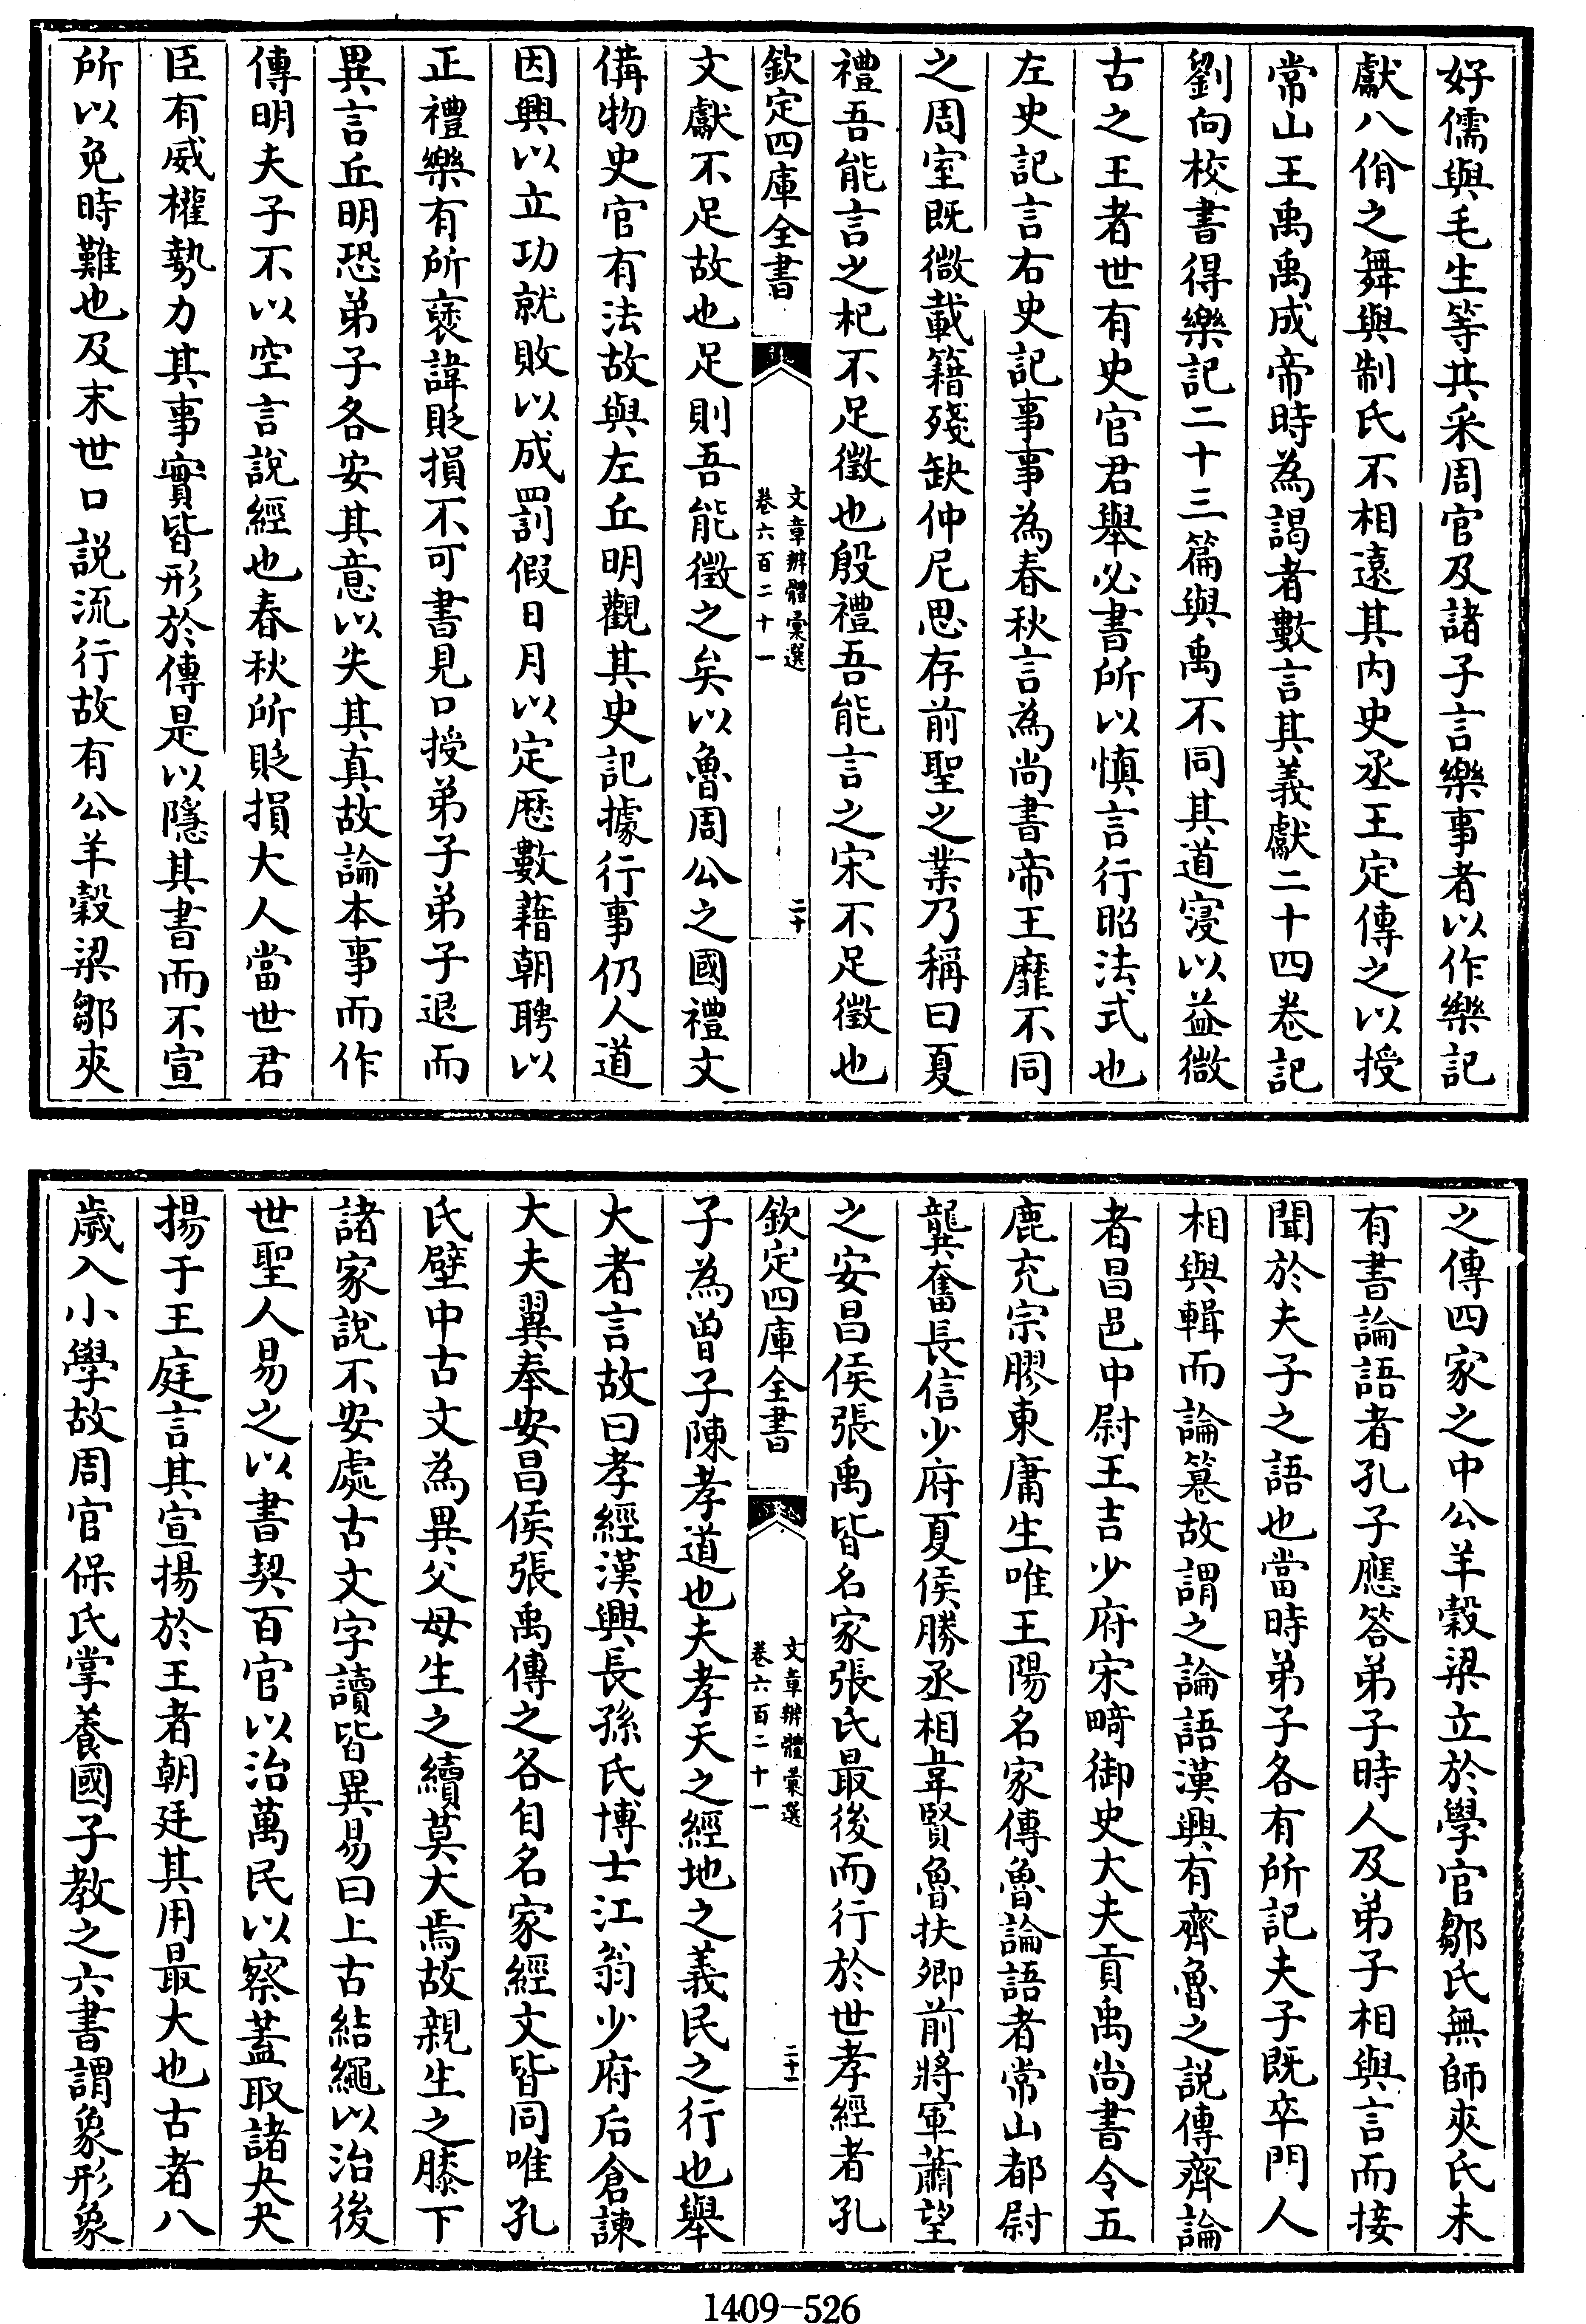 好儒與毛生等共采周官及諸子言樂事者以作樂記
獻八佾之舞與制氏不相遠其内史丞王定傳之以授
常山王禹禹成帝時為謁者數言其義獻二十四卷記
劉向校書得樂記二十三篇與禹不同其道寖以益微
古之王者世有史官君舉必書所以慎言行昭法式也
左史記言右史記事事為春秋言為尚書帝王靡不同
之周室既微載籍殘缺仲尼思存前聖之業乃稱曰夏
禮吾能言之杞不足徵也殷禮吾能言之宋不足徵也
欽定四庫全書
文章辨體彙選
卷六百二十一
二十
文獻不足故也足則吾能徵之矣以魯周公之國禮文
備物史官有法故與左丘明觀其史記據行事仍人道
因興以立功就敗以成罰假日月以定厯數藉朝聘以
正禮樂有所褒諱貶損不可書見口授弟子弟子退而
異言丘明恐弟子各安其意以失其真故論本事而作
傳明夫子不以空言說經也春秋所貶損大人當世君
臣有威權勢力其事實皆形於傳是以隱其書而不宣
所以免時難也及末世口説流行故有公羊穀梁鄒夾
之傳四家之中公羊穀梁立於學官鄒氏無師夾氏未
有書論語者孔子應答弟子時人及弟子相與言而接
聞於夫子之語也當時弟子各有所記夫子既卒門人
相與輯而論篹故謂之論語漢興有齊魯之説傳齊論
者昌邑中尉王吉少府宋畸御史大夫貢禹尚書令五
鹿充宗膠東庸生唯王陽名家傳魯論語者常山都尉
龔奮長信少府夏侯勝丞相韋賢魯扶卿前將軍蕭望
之安昌侯張禹皆名家張氏最後而行於世孝經者孔
欽定四庫全書
文章辨體彙選
卷六百二十一
二十一
子為曾子陳孝道也夫孝天之經地之義民之行也舉
大者言故曰孝經漢興長孫氏博士江翁少府后倉諫
大夫翼奉安昌侯張禹傳之各自名家經文皆同唯孔
氏壁中古文為異父母生之續莫大焉故親生之膝下
諸家說不安處古文字讀皆異易曰上古結繩以治後
世聖人易之以書契百官以治萬民以察蓋取諸夬夬
揚于王庭言其宣揚於王者朝廷其用最大也古者八
歲入小學故周官保氏掌養國子教之六書謂象形象
1409-526